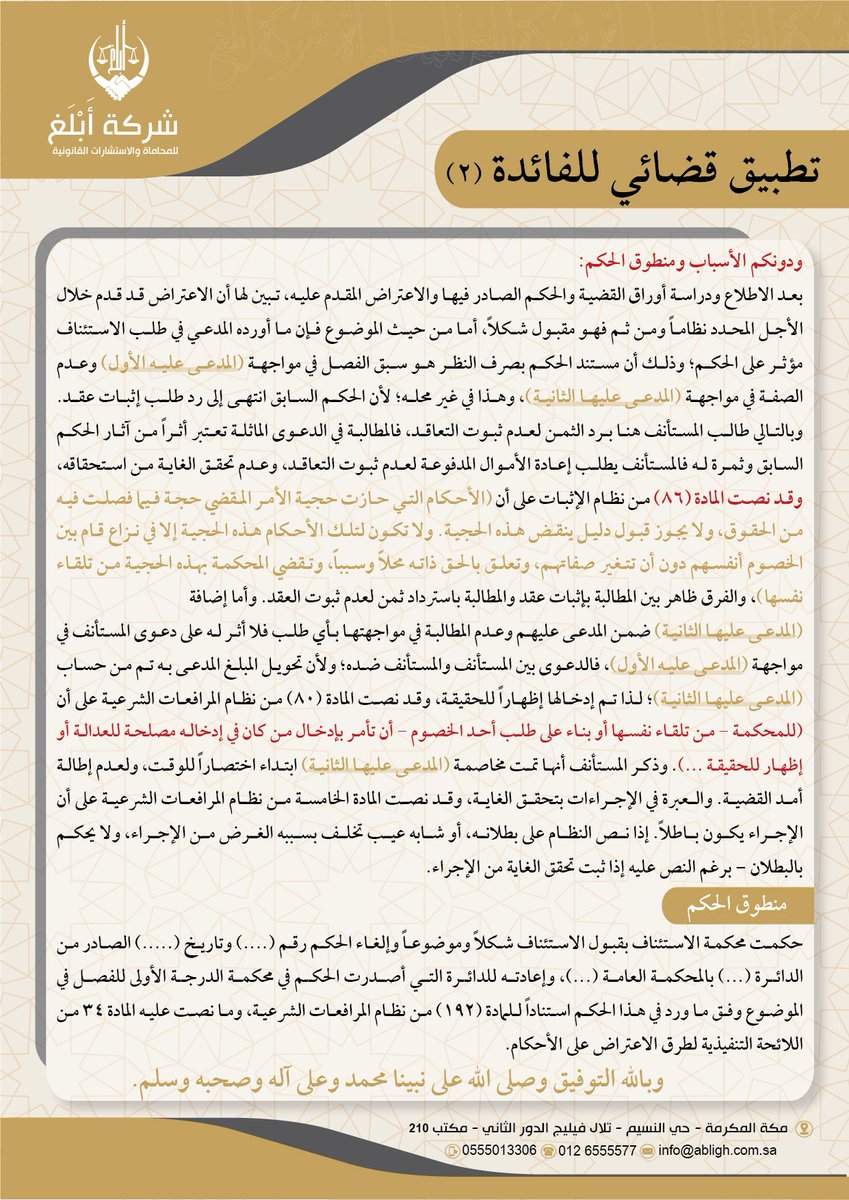 شركة أَبْلَغ
للمحاماة والاستشارات القانونية
تطبيق قضائي للفائدة (٢)
ودونكم الأسباب ومنطوق الحكم:
بعد الاطلاع ودراسة أوراق القضية والحكم الصادر فيها والاعتراض المقدم عليه، تبين لها أن الاعتراض قد قدم خلال
الأجل المحدد نظاماً ومن ثم فهو مقبول شكلاً، أما من حيث الموضوع فإن ما أورده المدعي في طلب الاستئناف
مؤثر على الحكم؛ وذلك أن مستند الحكم بصرف النظر هو سبق الفصل في مواجهة (المدعى عليه الأول) وعدم
الصفة في مواجهة (المدعى عليها الثانية)، وهذا في غير محله؛ لأن الحكم السابق انتهى إلى رد طلب إثبات عقد.
وبالتالي طالب المستأنف هنا برد الثمن لعدم ثبوت التعاقد، فالمطالبة في الدعوى الماثلة تعتبر أثراً من آثار الحكم
السابق وثمرة له فالمستأنف يطلب إعادة الأموال المدفوعة لعدم ثبوت التعاقد، وعدم تحقق الغاية من استحقاقه،
وقد نصت المادة (٨٦) من نظام الإثبات على أن (الأحكام التي حازت حجية الأمر المقضي حجة فيما فصلت فيه
من الحقوق، ولا يجوز قبول دليل ينقض هذه الحجية. ولا تكون لتلك الأحكام هذه الحجية إلا في نزاع قام بين
الخصوم أنفسهم دون أن تتغير صفاتهم، وتعلق بالحق ذاته محلاً وسبباً، وتقضي المحكمة بهذه الحجية من تلقاء
نفسها)، والفرق ظاهر بين المطالبة بإثبات عقد والمطالبة باسترداد ثمن لعدم ثبوت العقد. وأما إضافة
(المدعى عليها الثانية) ضمن المدعى عليهم وعدم المطالبة في مواجهتها بأي طلب فلا أثر له على دعوى المستأنف في
مواجهة (المدعى عليه الأول)، فالدعوى بين المستأنف والمستأنف ضده؛ ولأن تحويل المبلغ المدعى به تم من حساب
(المدعى عليها الثانية)؛ لذا تم إدخالها إظهاراً للحقيقة، وقد نصت المادة (٨٠) من نظام المرافعات الشرعية على أن
(للمحكمة - من تلقاء نفسها أو بناء على طلب أحد الخصوم - أن تأمر بإدخال من كان في إدخاله مصلحة للعدالة أو
إظهار للحقيقة ...). وذكر المستأنف أنها تمت مخاصمة (المدعى عليها الثانية) ابتداء اختصاراً للوقت، ولعدم إطالة
أمد القضية. والعبرة في الإجراءات بتحقق الغاية، وقد نصت المادة الخامسة من نظام المرافعات الشرعية على أن
الإجراء يكون باطلاً. إذا نص النظام على بطلانه، أو شابه عيب تخلف بسببه الغرض من الإجراء، ولا يحكم
بالبطلان - برغم النص عليه إذا ثبت تحقق الغاية من الإجراء.
منطوق الحكم
حكمت محكمة الاستئناف بقبول الاستئناف شكلاً وموضوعاً وإلغاء الحكم رقم (....) وتاريخ (.....) الصادر من
الدائرة (...) بالمحكمة العامة (...)، وإعادته للدائرة التي أصدرت الحكم في محكمة الدرجة الأولى للفصل في
الموضوع وفق ما ورد في هذا الحكم استناداً للمادة (١٩٢) من نظام المرافعات الشرعية، وما نصت عليه المادة ٣٤ من
اللائحة التنفيذية لطرق الاعتراض على الأحكام.
وبالله التوفيق وصلى الله على نبينا محمد وعلى آله وصحبه وسلم.
مكة المكرمة - حي النسيم - تلال فيليج الدور الثاني - مكتب 210
0555013306 012 6555577 info@abligh.com.sa